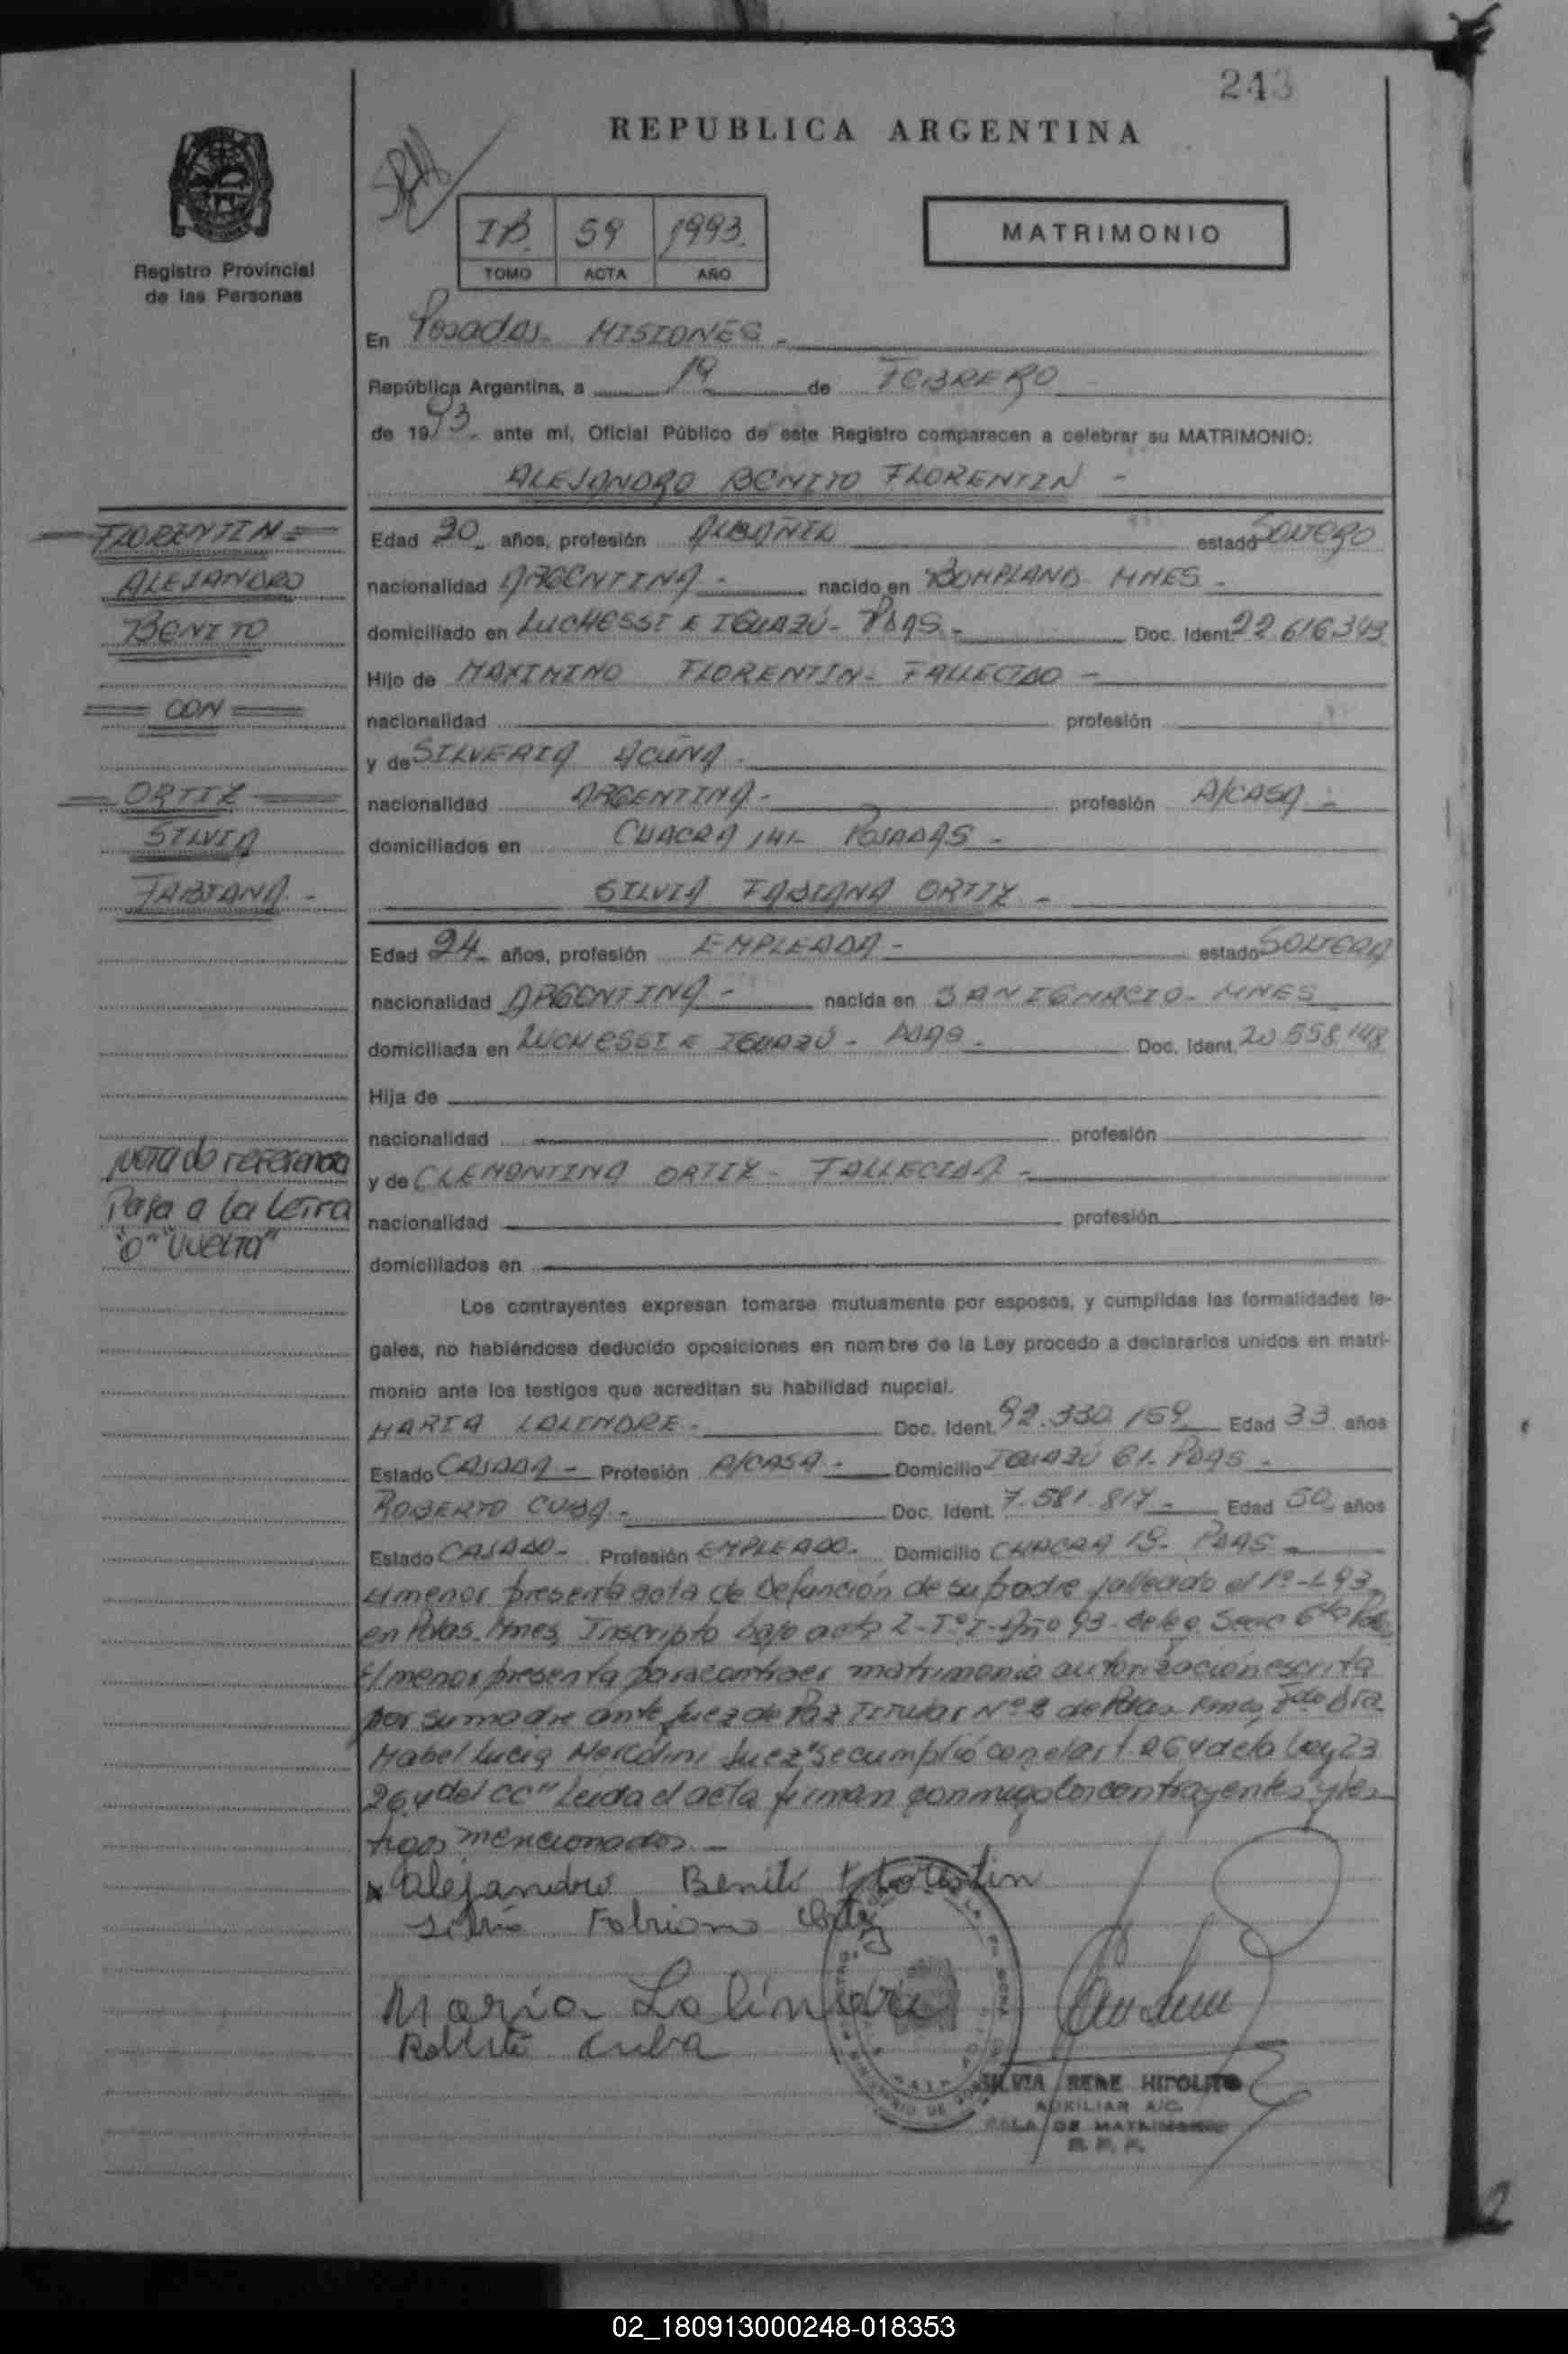 243
REPUBLICA ARGENTINA
Registro Provincial
de las Personas
IB. 59 1993.
TOMO ACTA AÑO
MATRIMONIO
En Posadas - MISIONES -
República Argentina, a 19 de FEBRERO
de 1993. ante mí, Oficial Público de este Registro comparecen a celebrar su MATRIMONIO:
ALEJANDRO BENITO FLORENTIN -
FLORENTIN
ALEJANDRO
BENITO
CON
ORTIZ
SILVIA
FABIANA -
Edad 20 años, profesión ALBAÑIL estado SOLTERO
nacionalidad ARGENTINA - nacido en BOMPLAND MNES -
domiciliado en LUCHESSI E IGUAZÚ - PDAS - Doc. Ident. 22.616.343
Hijo de MAXIMINO FLORENTIN - FALLECIDO -
nacionalidad profesión
y de SILVERIA ACUÑA -
nacionalidad ARGENTINA - profesión A/CASA -
domiciliados en CHACRA 141 - POSADAS -
SILVIA FABIANA ORTIZ -
Edad 24 años, profesión EMPLEADA - estado SOLTERA
nacionalidad ARGENTINA - nacida en SAN IGNACIO - MNES
domiciliada en LUCHESSI E IGUAZÚ - PDAS - Doc. Ident. 20.558.148
Hija de
nacionalidad profesión
y de CLEMENTINA ORTIZ - FALLECIDA -
nacionalidad profesión
domiciliados en
Nota de referencia
Pasa a la Letra
"O" "Vuelta"
Los contrayentes expresan tomarse mutuamente por esposos, y cumplidas las formalidades le-
gales, no habiéndose deducido oposiciones en nombre de la Ley procedo a declararlos unidos en matri-
monio ante los testigos que acreditan su habilidad nupcial.
MARIA LALINDRE - Doc. Ident. 92.330.159 Edad 33 años
Estado CASADA - Profesión A/CASA - Domicilio IGUAZÚ 61 - PDAS -
ROBERTO CUBA - Doc. Ident. 7.581.817 - Edad 50 años
Estado CASADO - Profesión EMPLEADO - Domicilio CHACRA 19 - PDAS -
El menor presenta acta de Defunción de su padre fallecido el 1º-1-93
en Pdas. Mnes Inscripto bajo acta 2 - Tº I - Año 93 - Secc 6ta
El menor presenta para contraer matrimonio autorización escrita
por su madre ante Juez de Paz Titular Nº de Pdas Dra
Mabel Lucia Juez "Se cumplió con el art. 264 de la Ley 23
264 del CC" Leida el acta firman conmigo los contrayentes y tes
tigos mencionados -
Alejandro Benito Florentin
Silvia Fabiana Ortiz
Maria Lalindre
Roberto Cuba
SILVIA RENE HIPOLITO
AUXILIAR A/C.
SALA DE MATRIMONIO
R. P. P.
2
02_180913000248-018353